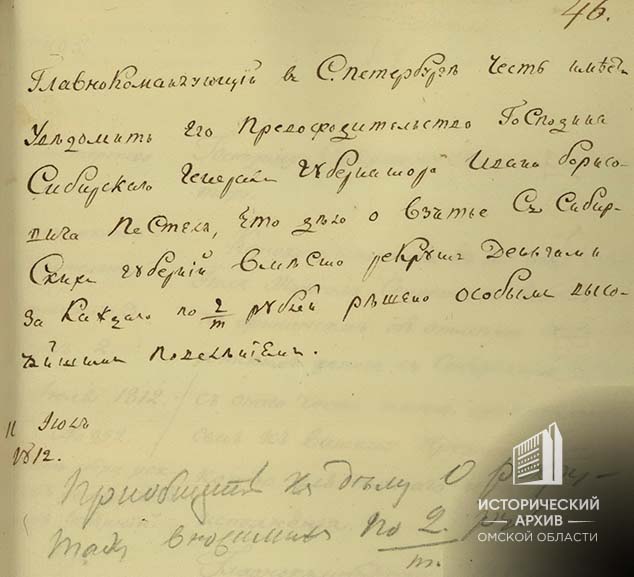 46.
Главнокомандующий в С. Петербурге честь имеет
Уведомить Его Превосходительство Господина
Сибирскаго Генерал Губернатора Ивана Борисо-
вича Пестеля, что дело о взятье съ Сибир-
скихъ Губерний вместо рекрутъ деньгами
за каждаго по 2/т рублей решено особымъ высо-
чайшимъ повелениемъ.
11 Июля
1812.
Приобщить къ делу о рекру-
тахъ вносимыхъ по 2/т.
ИСТОРИЧЕСКИЙ
АРХИВ
ОМСКОЙ ОБЛАСТИ